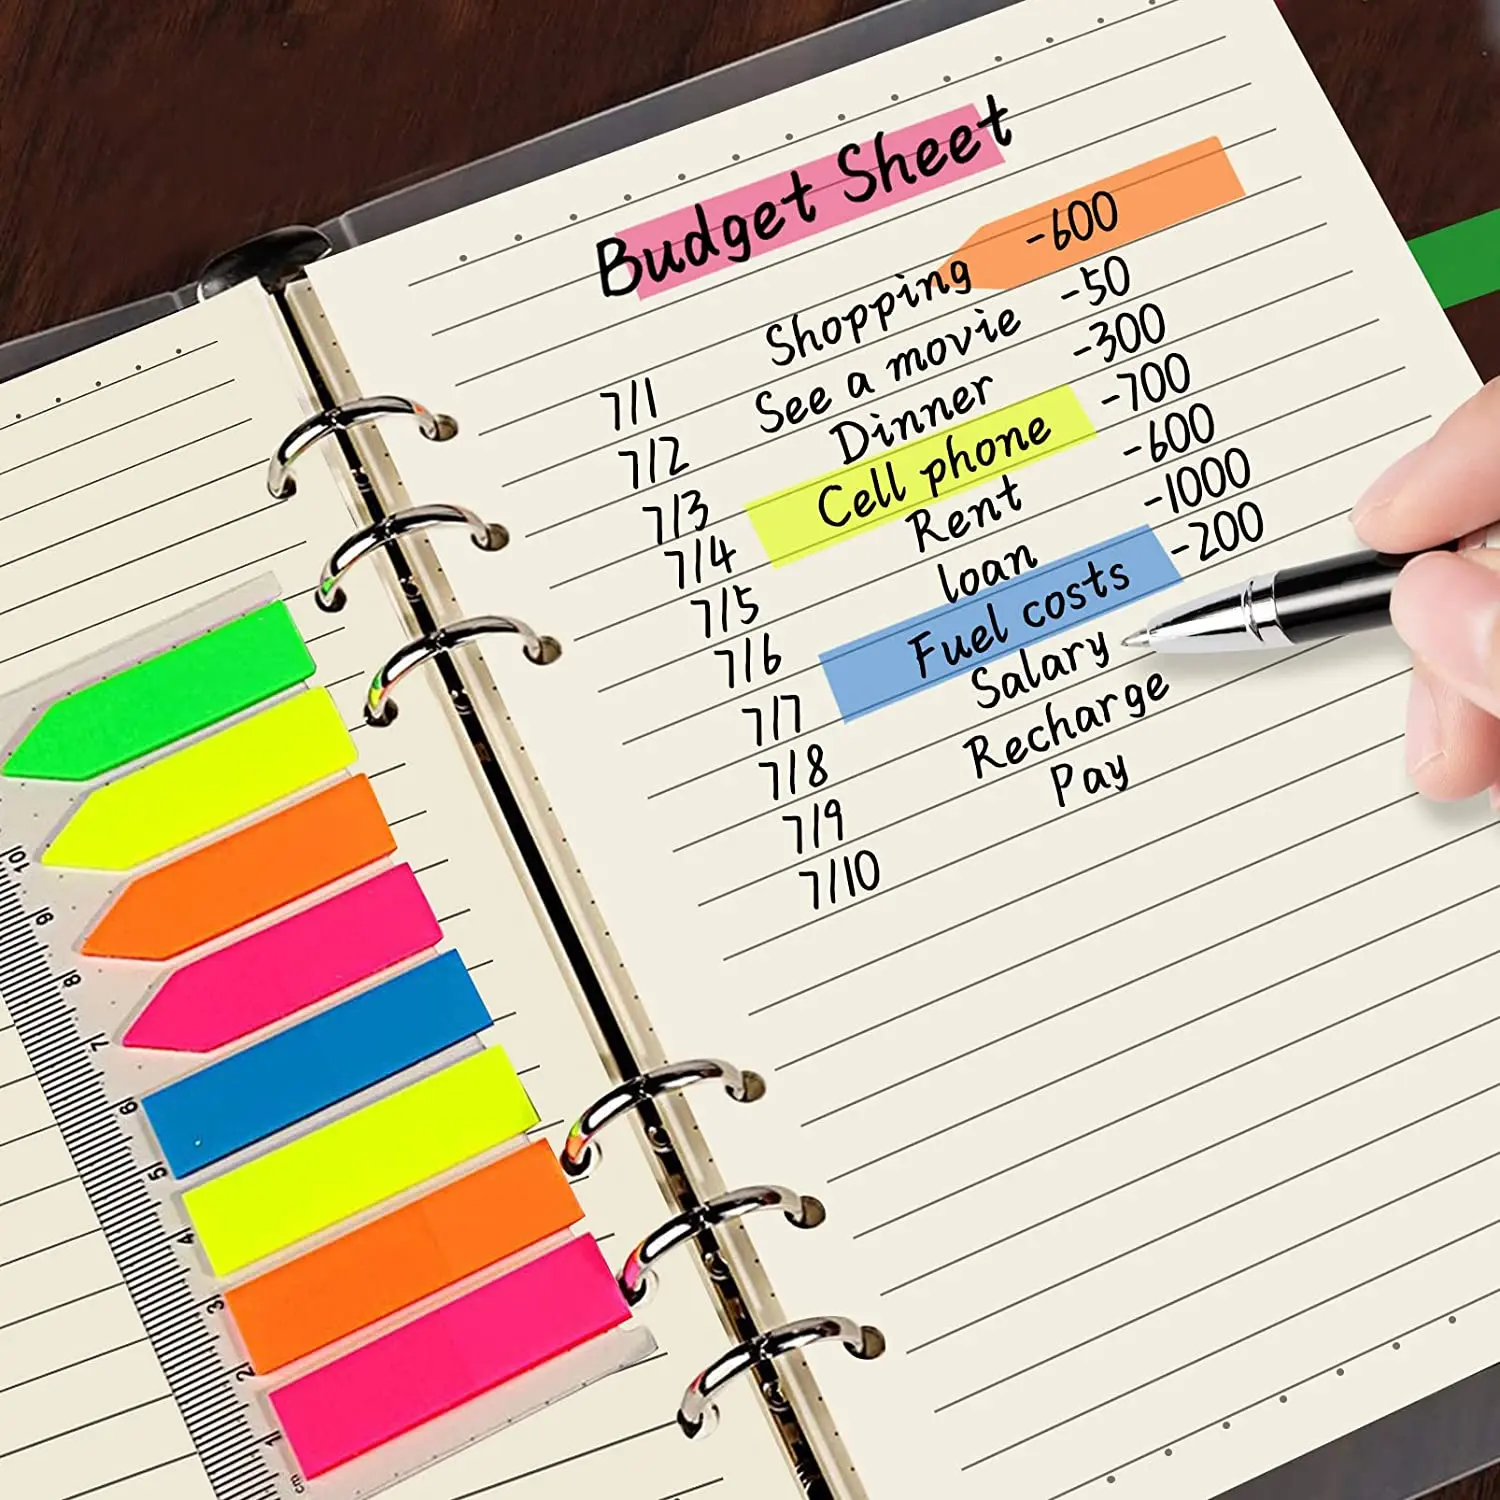 Budget Sheet
7/1 Shopping -600
7/2 See a movie -50
7/3 Dinner -300
7/4 Cell phone -700
7/5 Rent -600
7/6 loan -1000
7/7 Fuel costs -200
7/8 Salary
7/9 Recharge
7/10 Pay
10
9
8
7
6
5
4
3
2
1
cm